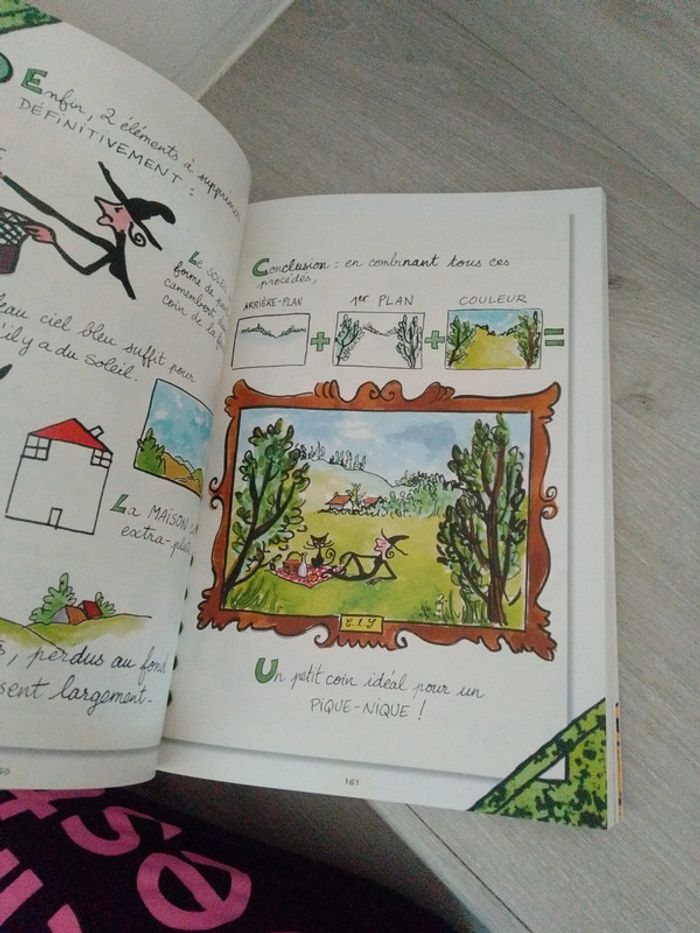 Enfin, 2 éléments à supprimer
DÉFINITIVEMENT :
Le SOLEIL
forme de
camembert
coin de la
ciel bleu suffit pour
il y a du soleil.
La MAISON
extra-
perdus au fond
largement.
Conclusion : en combinant tous ces
procédés,
ARRIÈRE-PLAN 1er PLAN COULEUR
+ + =
E.L.S
Un petit coin idéal pour un
PIQUE-NIQUE !
161